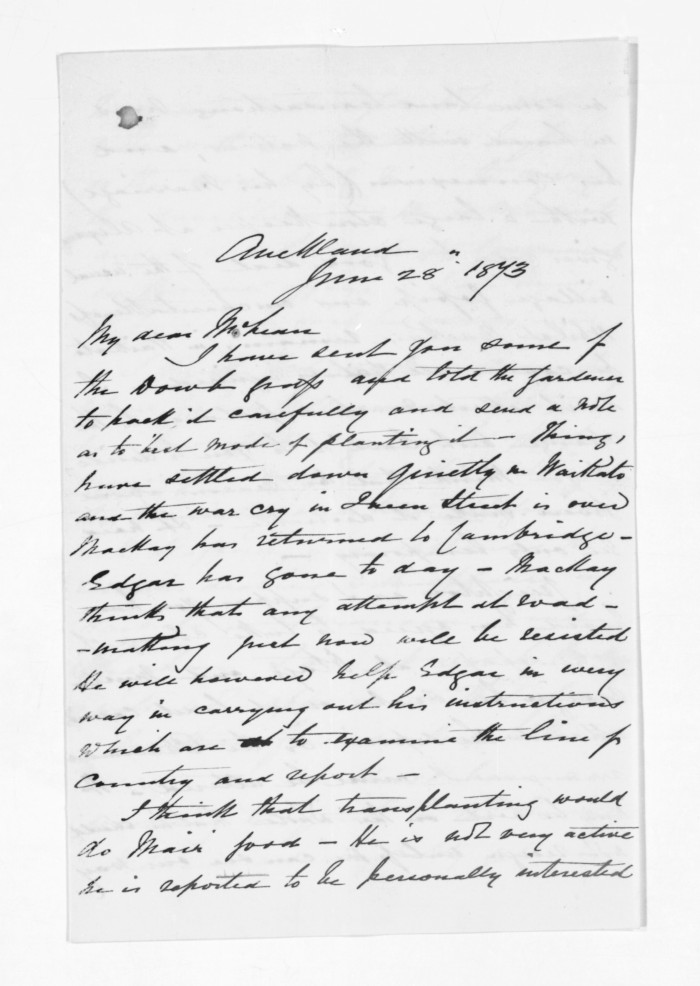 Auckland
June 28" 1873
My dear McLean
I have sent you some of
the Doub grass and told the Gardener
to pack it carefully and send a note
as to best mode of planting it – Things
have settled down quietly in Waikato
and the war cry in Queen Street is over
Mackay has returned to Cambridge –
Edgar has gone to day – Mackay
thinks that any attempt at road –
– making just now will be resisted
He will however help Edgar in every
way in carrying out his instructions
which are to examine the line of
Country and report –
I think that transplanting would
do Mair good – He is not very active
he is reported to be personally interested